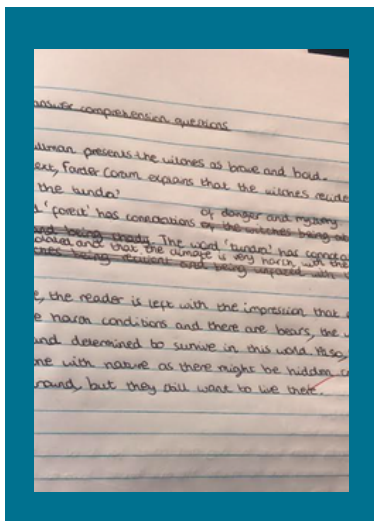 answer comprehension questions
ullman presents the witches as brave and bold.
ext, Farder Coram explains that the witches reside
the tundra'
d 'forest' has connotations of danger and mystery.
The word 'tundra' has connota
isolated and that the climate is very harsh with the
e, the reader is left with the impression that
e harsh conditions and there are bears, the w
and determined to survive in this world. Also,
one with nature as there might be hidden
round, but they still want to live there.